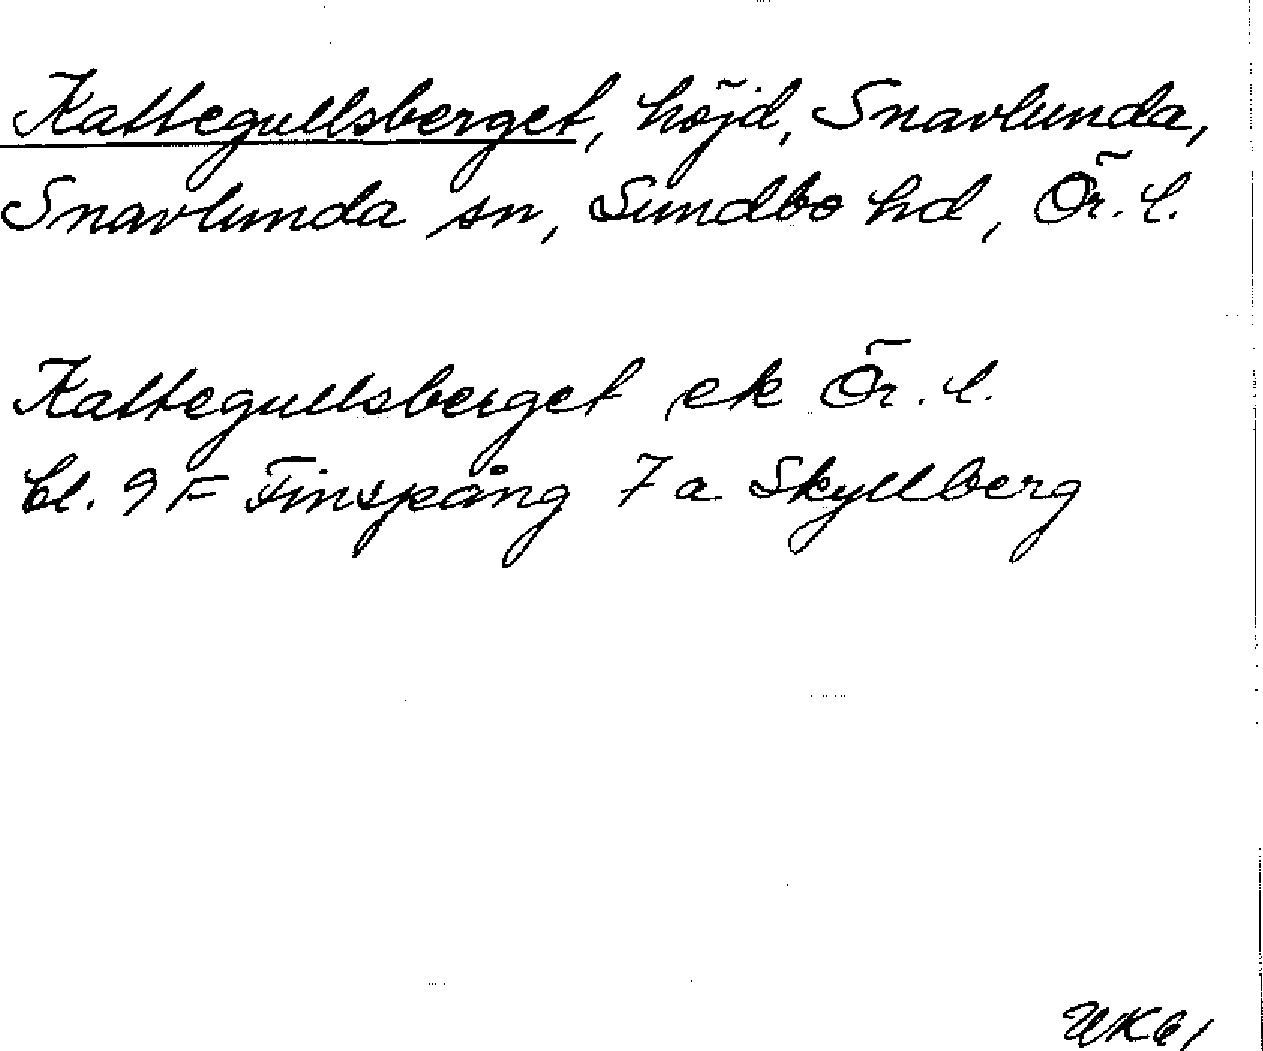 Kattegullsberget, höjd, Snavlunda,
Snavlunda sn, Sundbo hd, Ör. l.
Kattegullsberget ek Ör. l.
bl. 9 F Finspång 7 a Skyllberg